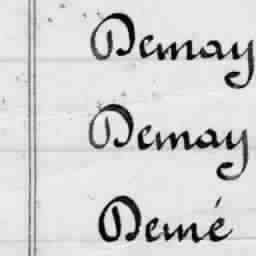 Demay
Demay
Demé